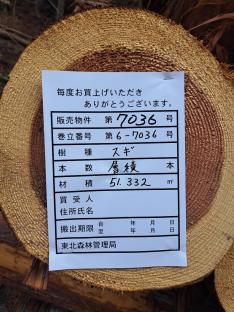 毎度お買上げいただき
ありがとうございます。
販売物件 第 7036 号
巻立番号 第 6-7036 号
樹種 スギ
本数 層積 本
材積 51.332 ㎥
買受人
住所氏名
搬出期限 自 年 月 日
至 年 月 日
東北森林管理局